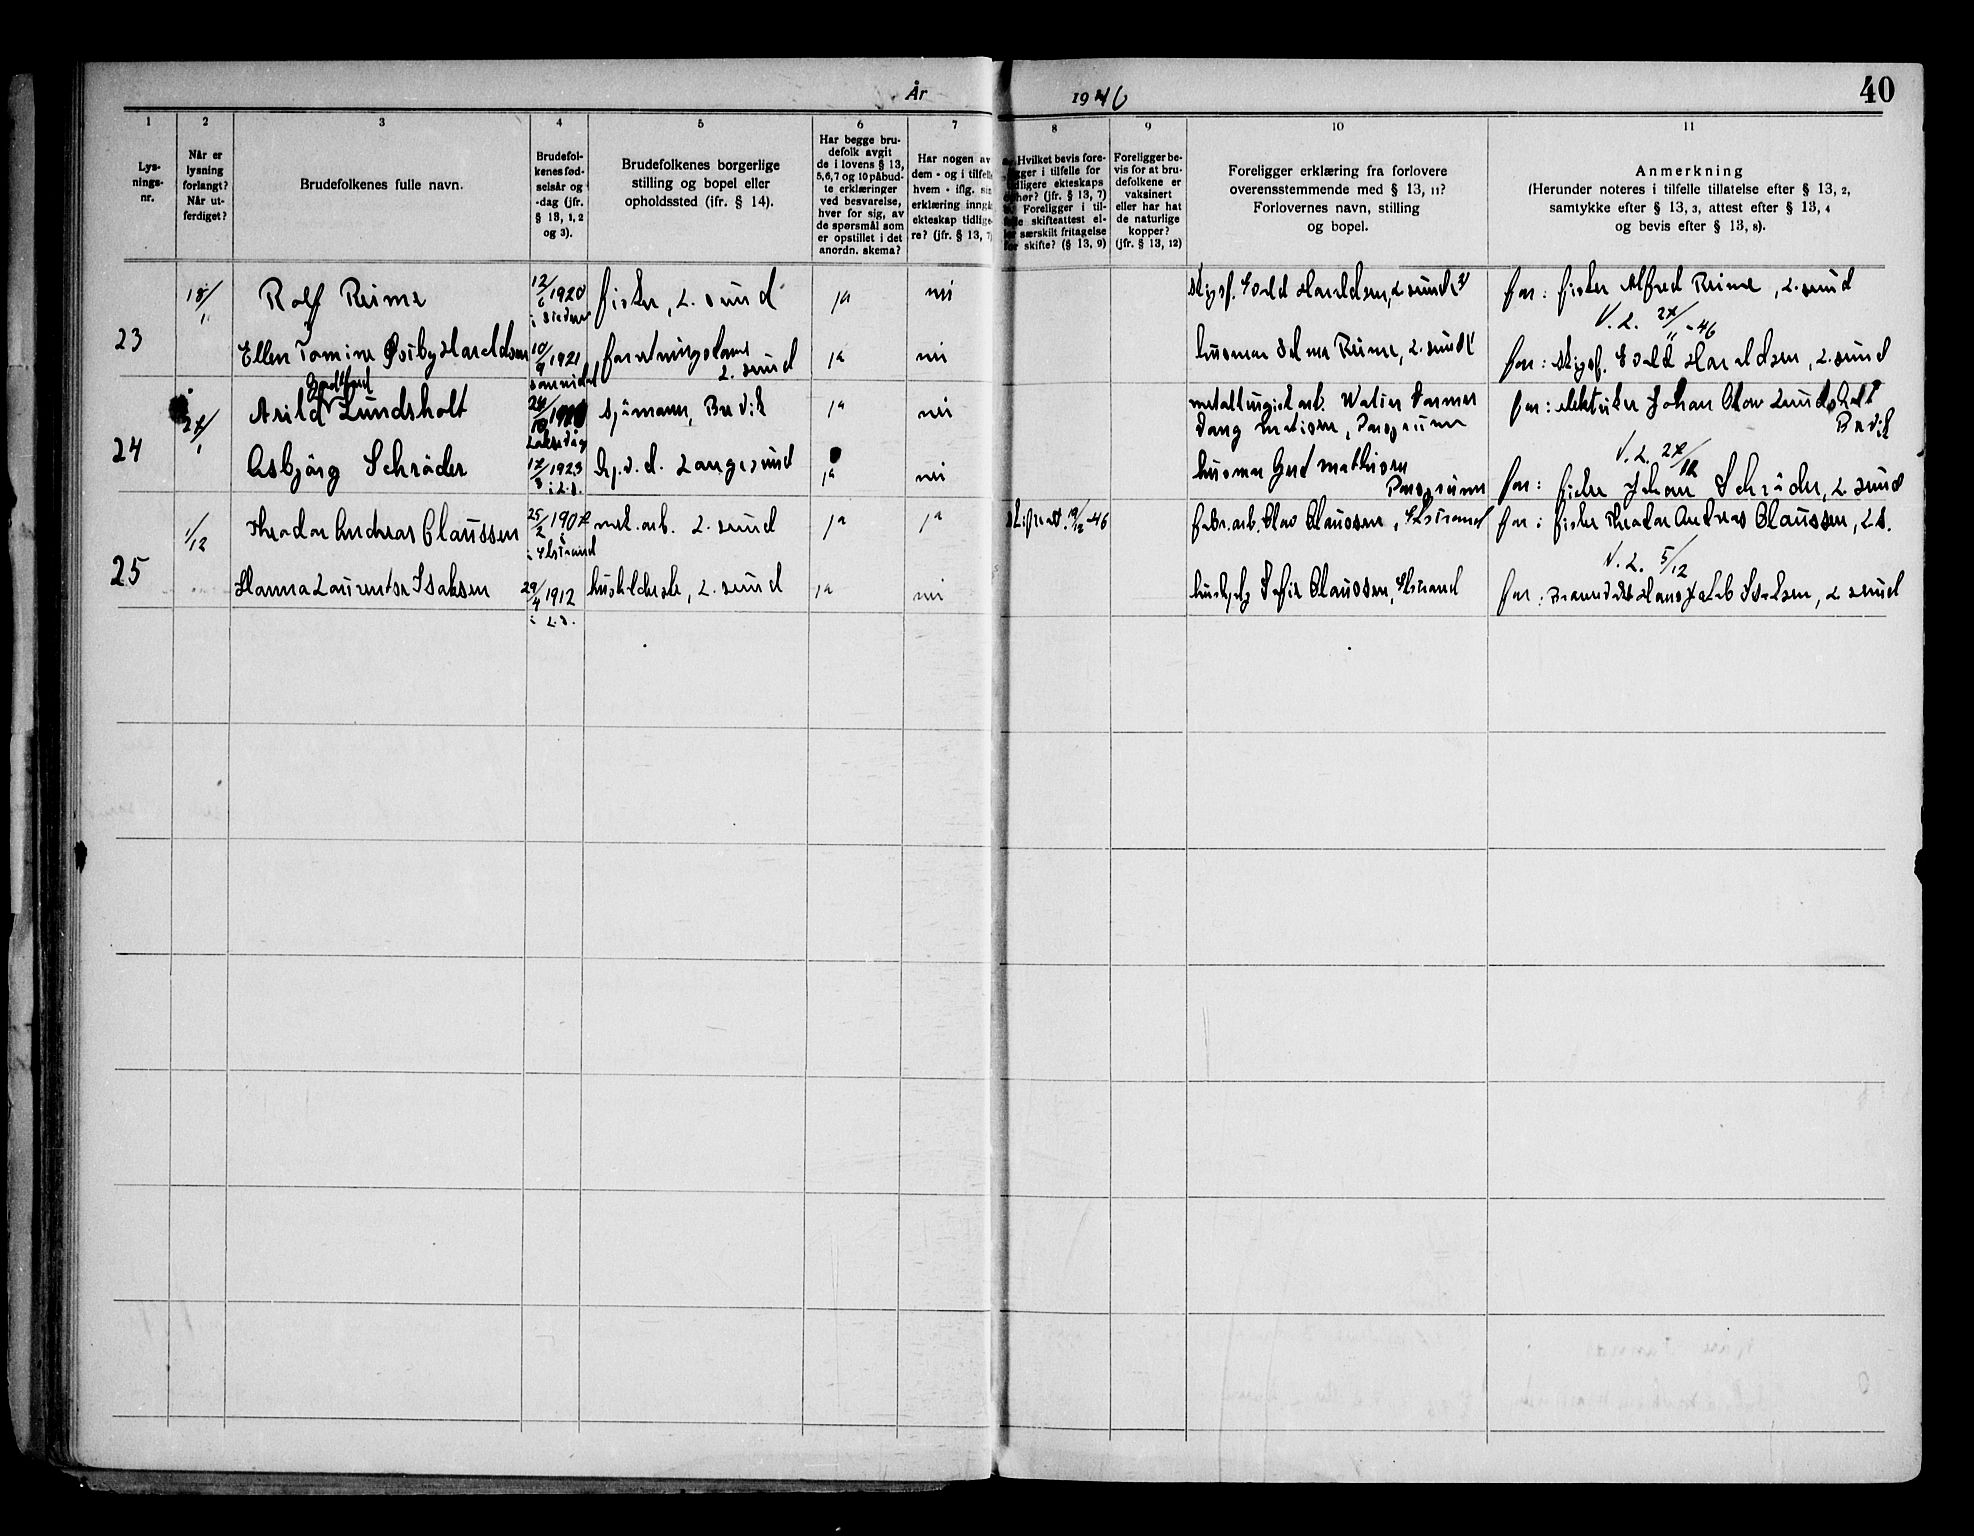 År 1946
40
1
2
3
4
5
6
7
8
9
10
11
Lys-
nings-
nr.
Når er
lysning
forlangt?
Når ut-
ferdiget?
Brudefolkenes fulle navn.
Brudefol-
kenes fød-
selsår og
-dag (jfr.
§ 13, 1, 2
og 3).
Brudefolkenes borgerlige
stilling og bopel eller
opholdssted (ifr. § 14).
Har begge bru-
defolk avgit
de i lovens § 13,
5,6,7 og 10 påbud-
te erklæringer
ved besvarelse,
hver for sig, av
de spørsmål som
er opstillet i det
anordn. skema?
Har nogen av
dem - og i tilfelle
hvem - iflg. sin
erklæring inngå
ekteskap tidlige-
re? (jfr. § 13, 7)
Hvilket bevis fore-
ligger i tilfelle for
tidligere ekteskaps
ophør? (jfr. § 13, 7)
Foreligger i til-
felle skifteattest el-
ler særskilt fritagelse
for skifte? (§ 13, 9)
Foreligger be-
vis for at bru-
defolkene er
vaksinert
eller har hat
de naturlige
kopper?
(jfr. § 13, 12)
Foreligger erklæring fra forlovere
overensstemmende med § 13, 11?
Forlovernes navn, stilling
og bopel.
Anmerkning
(Herunder noteres i tilfelle tillatelse efter § 13, 2,
samtykke efter § 13, 3, attest efter § 13, 4
og bevis efter § 13, 8).
23
18/
Rolf Reime
12/6 1920
fisker, L.sund
ja
nei
Haraldsen, L.sund
far: fisker Alfred Reime, L.sund
V. L. 27/11 -46
Ellen Tomine Østby Haraldsen
10/9 1921
L.sund
ja
nei
husmor Reime, L.sund
far: Haraldsen, L.sund
24
27/
Arild Lundsholt
sjømann, Brevik
ja
nei
metallurgisk arb.
Porsgrunn
far: elektriker Johan Olav Lundsholt
Brevik
V. L. 27/12
Asbjørg Schrøder
12/8 1923
i L.s.
Langesund
ja
nei
husmor Gerd Mathisen
Porsgrunn
far: fisker Johan Schrøder, L.sund
25
1/12
Theodor Andreas Claussen
25/2 1907
i Ølstrand
mek. arb. L.sund
ja
ja
-46
fabr.arb. Olav Claussen,
far: fisker Theodor Andreas Claussen, L.s.
V. L. 5/12
Hanna Laurentse Isaksen
29/4 1912
i L.s.
husholderske, L.sund
ja
nei
Sofie Claussen,
far: Hans Jakob Isaksen, L.sund